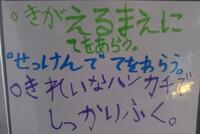 ○きがえるまえに
てをあらう。
○せっけんで てをあらう。
○きれいなハンカチで
しっかりふく。